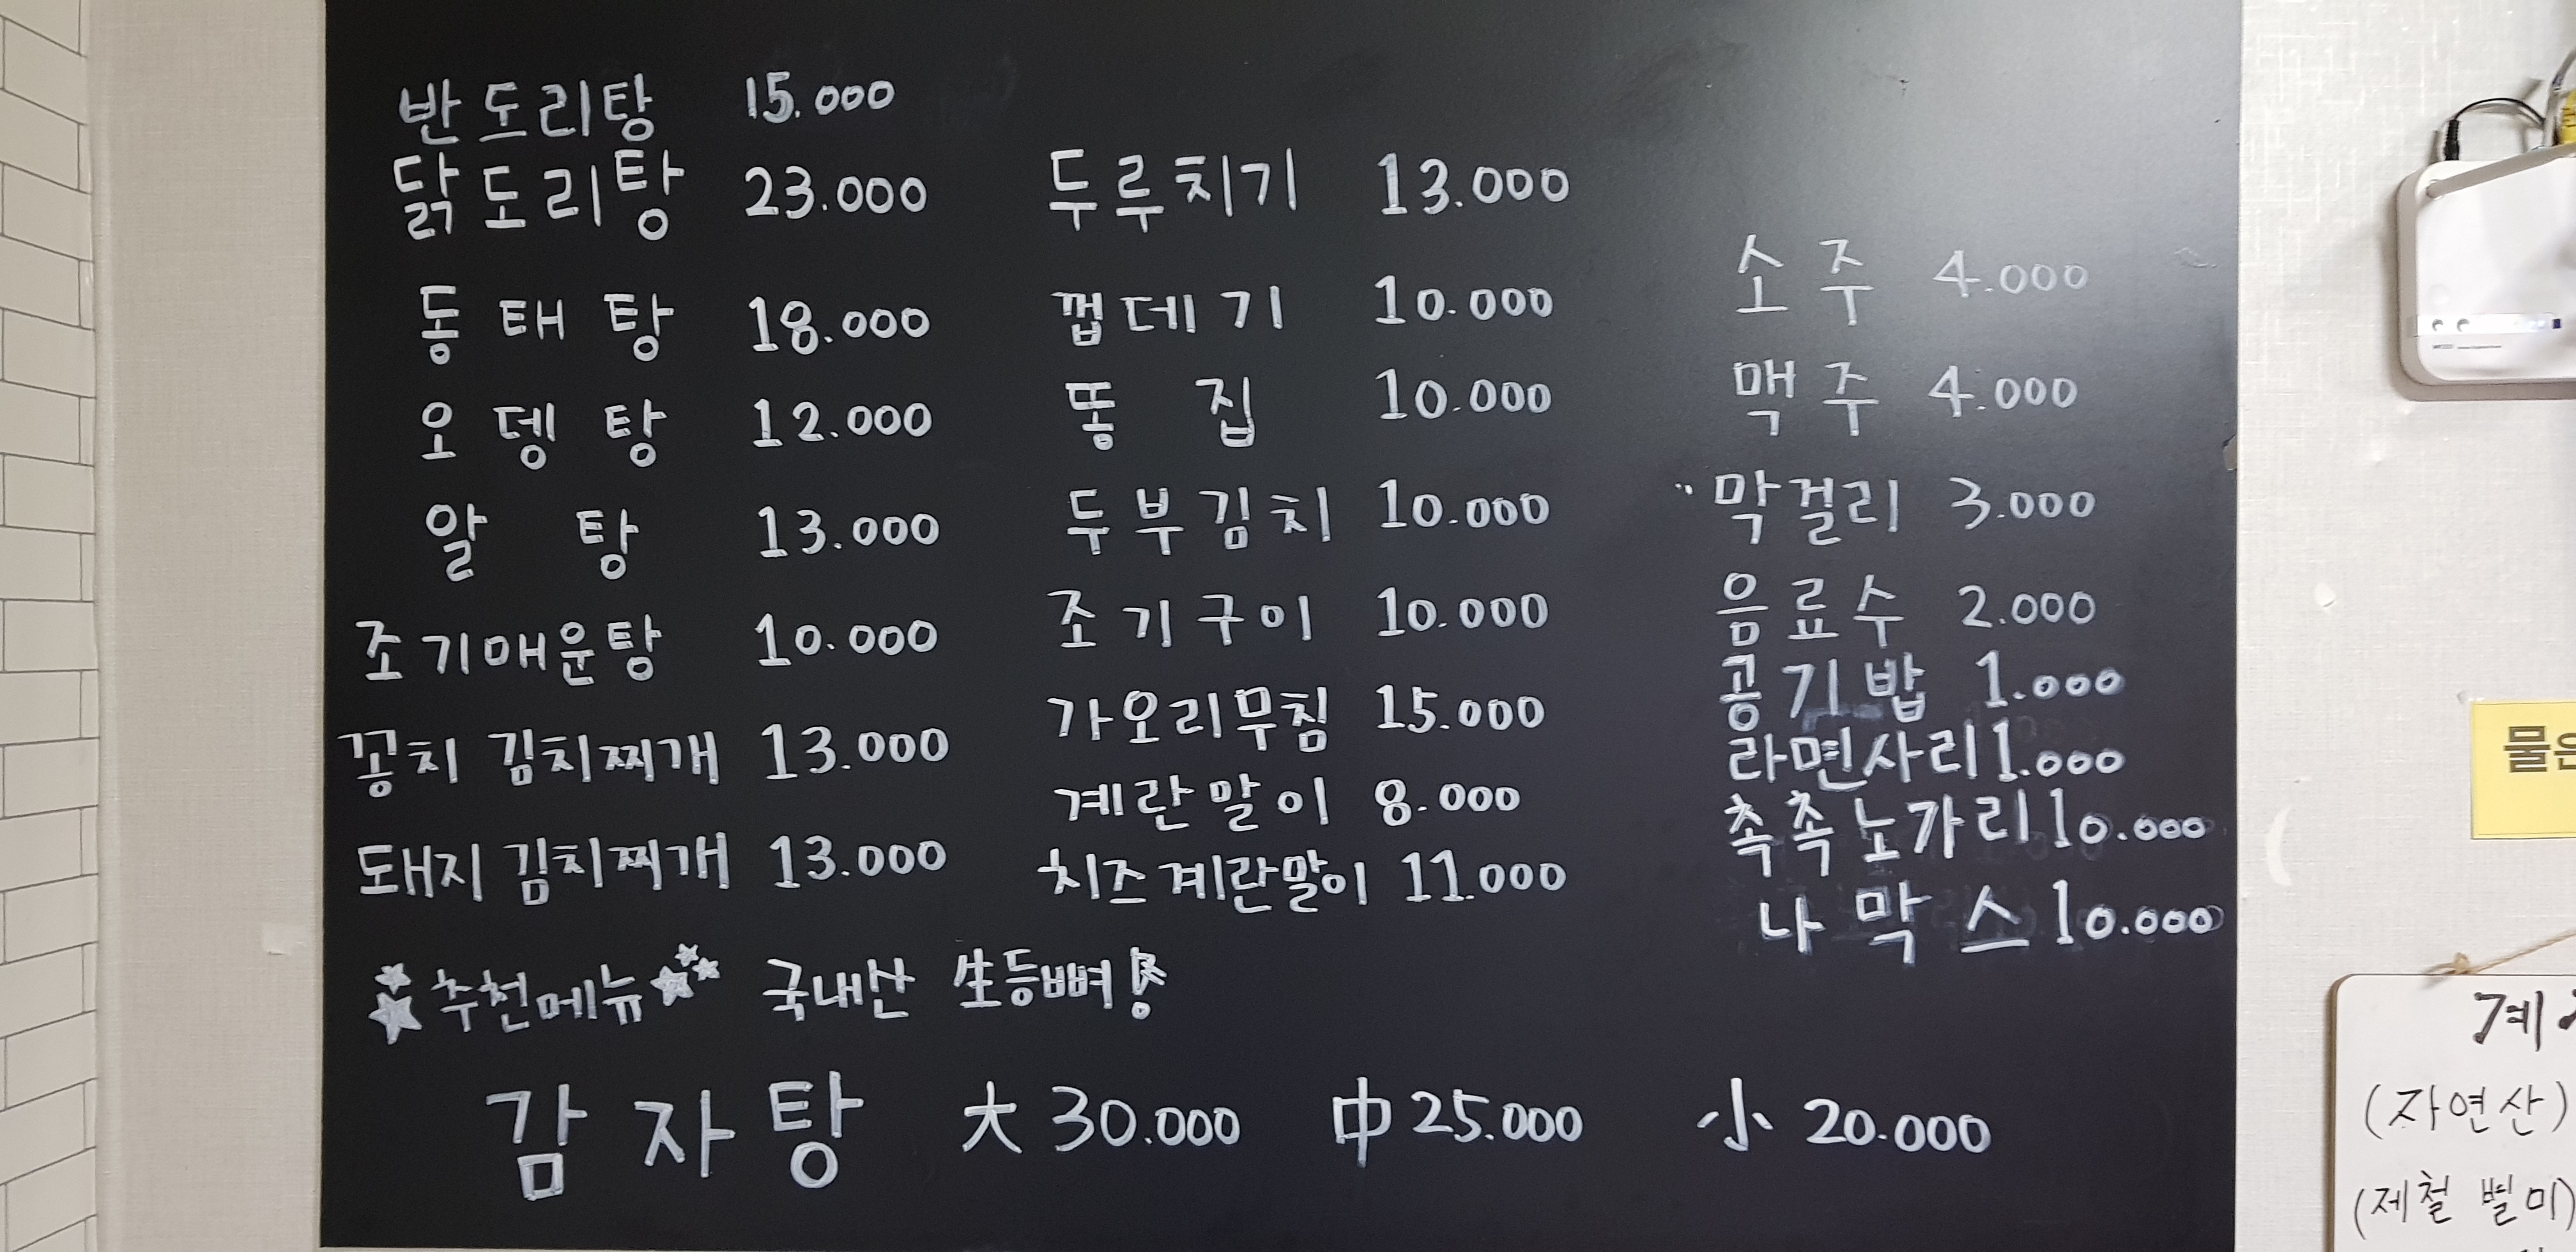 반도리탕 15.000
닭도리탕 23.000
동태탕 18.000
오뎅탕 12.000
알탕 13.000
조기매운탕 10.000
꽁치 김치찌개 13.000
돼지 김치찌개 13.000
두루치기 13.000
껍데기 10.000
똥집 10.000
두부김치 10.000
조기구이 10.000
가오리무침 15.000
계란말이 8.000
치즈계란말이 11.000
소주 4.000
맥주 4.000
막걸리 3.000
음료수 2.000
공기밥 1.000
라면사리 1.000
촉촉노가리 10.000
나막스 10.000
추천메뉴 국내산 生등뼈
감자탕 大 30.000 中 25.000 小 20.000
물은
(자연산)
(제철 별미)